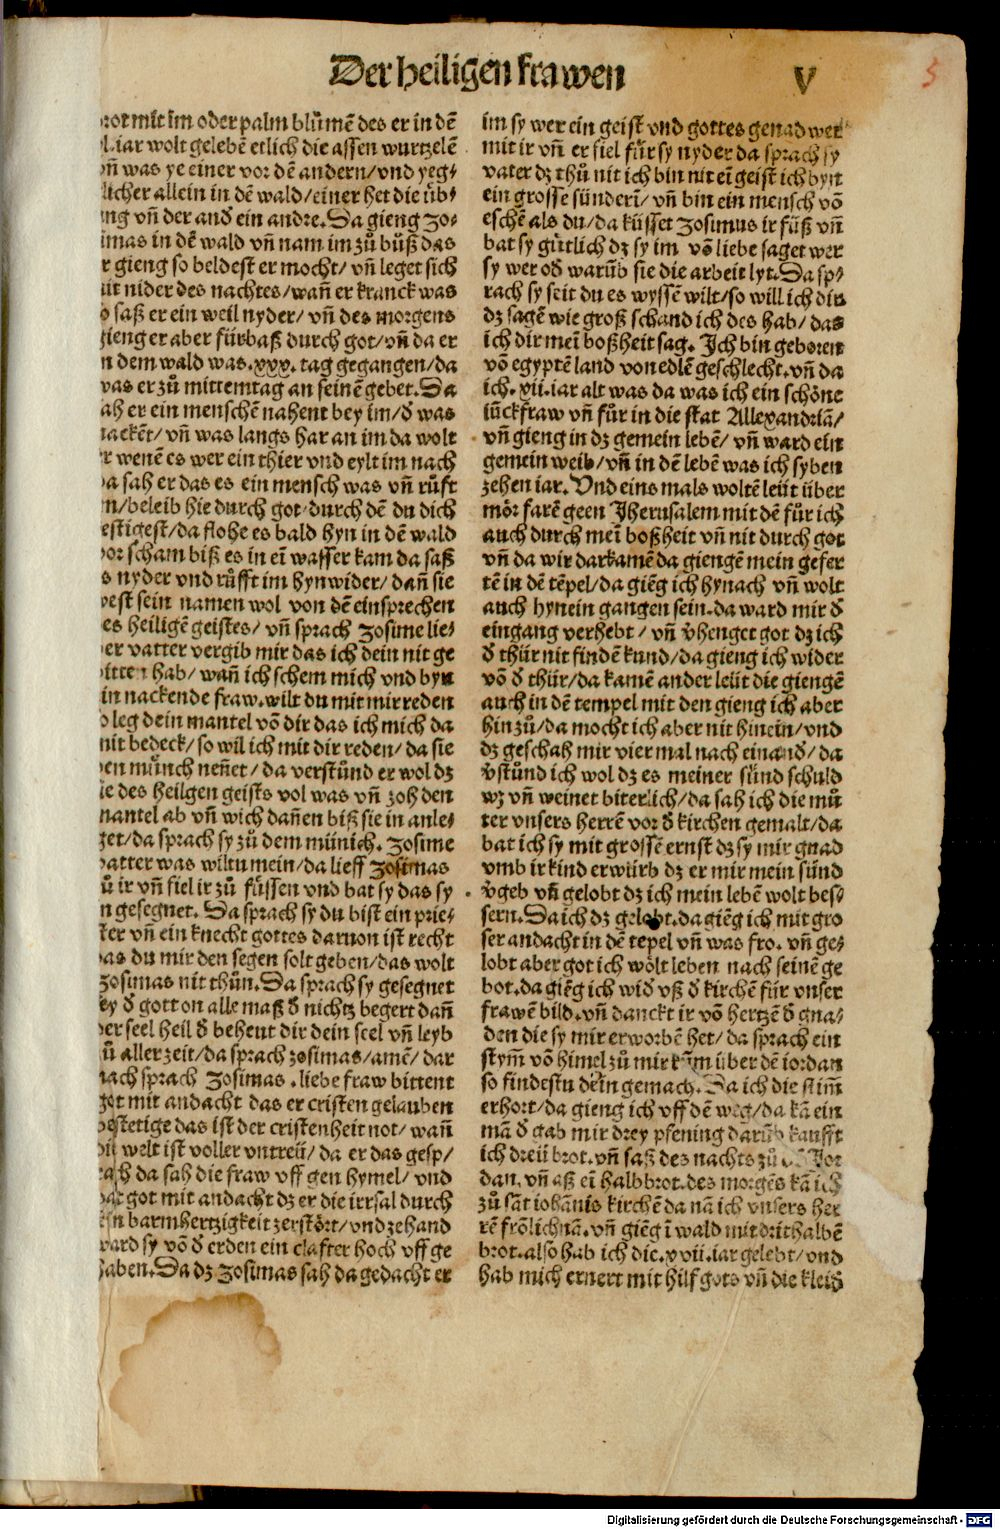 Der heiligen frawen V
5
rot mit im oder palm blůmē des er in dē
l.iar wolt gelebē etlich die assen wurtzelē
vñ was ye einer vor dē andern/vnd yeg⸗
licher allein in dē wald/einer het die üb⸗
ng vñ der and̄ ein andre. Da gieng Zo⸗
imas in dē wald vñ nam im zů bůß das
r gieng so beldest er mocht/vñ leget sich
nit nider des nachtes/wañ er kranck was
o saß er ein weil nyder/vñ des morgens
gieng er aber fürbaß durch got/vñ da er
n dem wald was.xxx.tag gegangen/da
was er zů mittemtag an seinē gebet. Da
sah er ein menschē nahent bey im/d̄ was
nackēt/vñ was langs har an im da wolt
r wenē es wer ein thier vnd eylt im nach
da sah er das es ein mensch was vñ růft
m/beleib hie durch got.durch dē du dich
estigest/da flohe es bald hyn in dē wald
vor scham biß es in eī wasser kam da saß
s nyder vnd růfft im hynwider/dañ sie
west sein namen wol von dē einsprechen
es heiligē geistes/vñ sprach Zosime lie⸗
er vatter vergib mir das ich dein nit ge
bitten hab/wañ ich schem mich vnd byn
in nackende fraw.wilt du mit mir reden
o leg dein mantel vō dir das ich mich da
mit bedeck/so wil ich mit dir reden/da sie
en münch neñet/da verstůnd er wol dz
ie des heilgen geists vol was vñ zoh den
mantel ab vñ wich dañen biß sie in anle⸗
get/da sprach sy zů dem münich. Zosime
vatter was wiltu mein/da lieff Zosimas
ů ir vñ fiel ir zů füssen vnd bat sy das sy
n gesegnet. Da sprach sy du bist ein prie⸗
ster vñ ein knecht gottes daruon ist recht
das du mir den segen solt geben/das wolt
Zosimas nit thůn. Da sprach sy gesegnet
sey d̄ got on alle maß d̄ nichtz begert dañ
der seel heil d̄ beheut dir dein seel vñ leyb
ů aller zeit/da sprach zosimas/amē/dar
nach sprach Zosimas.liebe fraw bittent
got mit andacht das er cristen gelauben
bestetige das ist der cristenheit not/wañ
die welt ist voller vntreü/da er das gesp/
rach da sah die fraw vff gen hymel/vnd
bat got mit andacht dz er die irrsal durch
sein barmhertzigkeit zerstört/vnd zehand
ward sy vō d̄ erden ein clafter hoch vff ge
haben. Da dz Zosimas sah da gedacht er
im sy wer ein geist vnd gottes genad wer
mit ir vñ er fiel für sy nyder da sprach sy
vater dz thů nit ich bin nit eī geist ich byn
ein grosse sünderī/vñ bin ein mensch vō
eschē als du/da küsset Zosimus ir füß vñ
bat sy gütlich dz sy im vō liebe saget wer
sy wer od̄ warūb sie die arbeit lyt. Da sp⸗
rach sy seit du es wyssē wilt/so will ich dir
dz sagē wie groß schand ich des hab/das
ich dir meī boßheit sag. Ich bin geboren
vō egyptē land von edlē geschlecht.vñ da
ich.xii.iar alt was da was ich ein schöne
iūckfraw vñ für in die stat Allexandriā/
vñ gieng in dz gemein lebē/vñ ward ein
gemein weib/vñ in dē lebē was ich syben
zehen iar. Vnd eins mals woltē leüt über
mör farē geen Jherusalem mit dē für ich
auch durch meī boßheit vñ nit durch got
vñ da wir darkamē da giengē mein gefer
tē in dē tēpel/da giēg ich hynach vñ wolt
auch hynein gangen sein.da ward mir d̄
eingang verhebt/vñ v̄henget got dz ich
d̄ thür nit findē kund/da gieng ich wider
vō d̄ thür/da kamē ander leüt die giengē
auch in dē tempel mit den gieng ich aber
hin zů/da mocht ich aber nit hinein/vnd
dz geschah mir vier mal nach einand̄/da
v̄stůnd ich wol dz es meiner sünd schuld
wz vñ weinet biterlich/da sah ich die můt
ter vnsers herrē vor d̄ kirchen gemalt/da
bat ich sy mit grossē ernst dz sy mir gnad
vmb ir kind erwürb dz er mir mein sünd
v̄geb vñ gelobt dz ich mein lebē wolt bes⸗
sern. Da ich dz gelobt.da giēg ich mit gro
ser andacht in dē tēpel vñ was fro.vñ ge⸗
lobt aber got ich wölt leben nach seinē ge
bot.da giēg ich wid̄ vß d̄ kirchē für vnser
frawē bild.vñ danckt ir vō hertzē d̄ gna⸗
den die sy mir erworbē het/da sprach ein
stym̄ vō himel zů mir kum̄ über dē iordan
so findestu dein gemach. Da ich die stim̄
erhort/da gieng ich vff dē weg/da kā ein
mā d̄ gab mir drey pfening darūb kaufft
ich dreü brot.vñ saß des nachts zů Jor
dan.vñ aß eī halb brot.des morgēs kā ich
zů sāt iohānis kirchē da nā ich vnsers her
rē frölichnā.vñ giēg ī wald mit drithalbē
brot.also hab ich die.xvii.iar gelebt/vnd
hab mich ernert mit hilf gots vñ die kleid̄
Digitalisierung gefördert durch die Deutsche Forschungsgemeinschaft - DFG